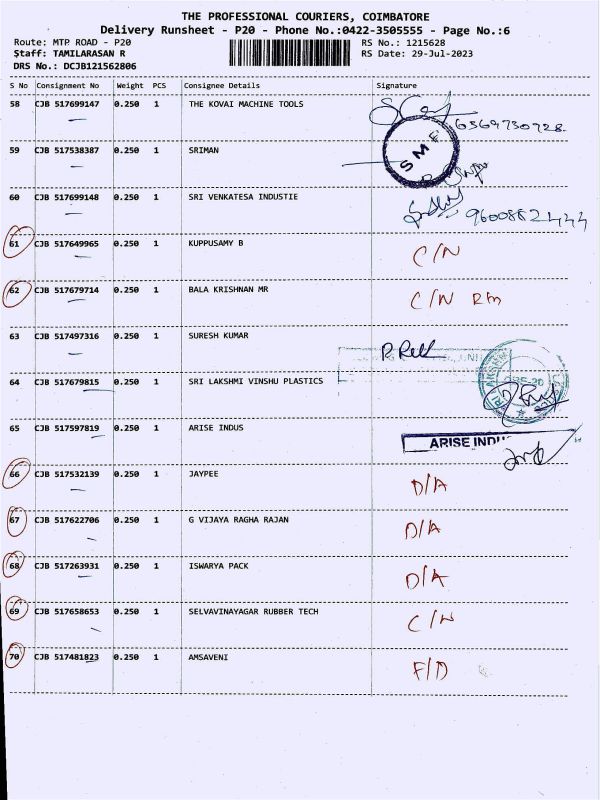 THE PROFESSIONAL COURIERS, COIMBATORE
Delivery Runsheet - P20 - Phone No.:0422-3505555 - Page No.:6
Route: MTP ROAD - P20 RS No.: 1215628
Staff: TAMILARASAN R RS Date: 29-Jul-2023
DRS No.: DCJB121562806
S No Consignment No Weight PCS Consignee Details Signature
58 CJB 517699147 0.250 1 THE KOVAI MACHINE TOOLS
6369730928
59 CJB 517538387 0.250 1 SRIMAN SMF
60 CJB 517699148 0.250 1 SRI VENKATESA INDUSTIE
61 CJB 517649965 0.250 1 KUPPUSAMY B C/N
62 CJB 517679714 0.250 1 BALA KRISHNAN MR C/N Rm
63 CJB 517497316 0.250 1 SURESH KUMAR
64 CJB 517679815 0.250 1 SRI LAKSHMI VINSHU PLASTICS
65 CJB 517597819 0.250 1 ARISE INDUS ARISE INDU
66 CJB 517532139 0.250 1 JAYPEE D/A
67 CJB 517622706 0.250 1 G VIJAYA RAGHA RAJAN D/A
68 CJB 517263931 0.250 1 ISWARYA PACK D/A
69 CJB 517658653 0.250 1 SELVAVINAYAGAR RUBBER TECH C/N
70 CJB 517481823 0.250 1 AMSAVENI F/D